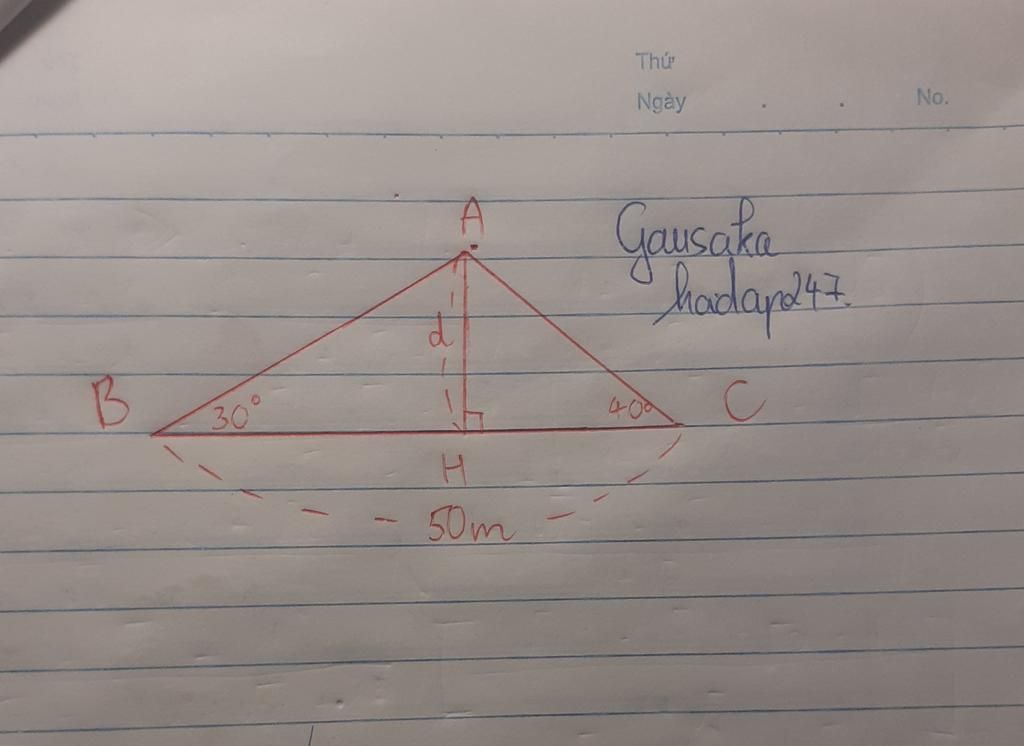 Thứ
Ngày . . No.
A
Gausaka
hadap247.
d
B 30° 40° C
H
50m